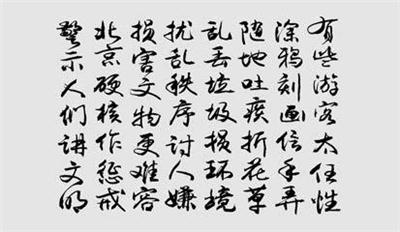 有些游客太任性
涂鸦刻画信手弄
随地吐痰折花草
乱丢垃圾损环境
扰乱秩序讨人嫌
损害文物更难容
北京硬核作惩戒
警示人们讲文明